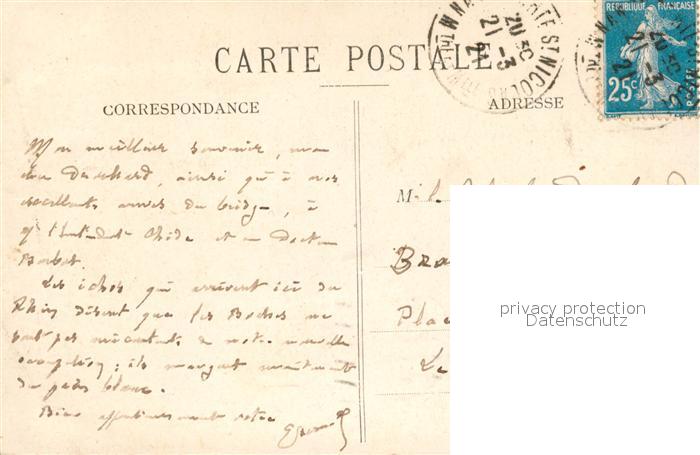 CARTE POSTALE
RÉPUBLIQUE FRANÇAISE
25c
20 30
21 -3
21
ST NICOLAS
CORRESPONDANCE
ADRESSE
Mon meilleur souvenir, mon
cher ainsi qu'à nos
excellents amis du bridge, à
Mr l'Intendant et au Docteur
M.
Les échos qui arrivent ici du
Rhin disent que les Boches ne
sont pas mécontents de notre nouvelle
occupation; ils mangent maintenant
du pain blanc.
Bien affectueusement votre
Bra
Pla
Le
privacy protection
Datenschutz